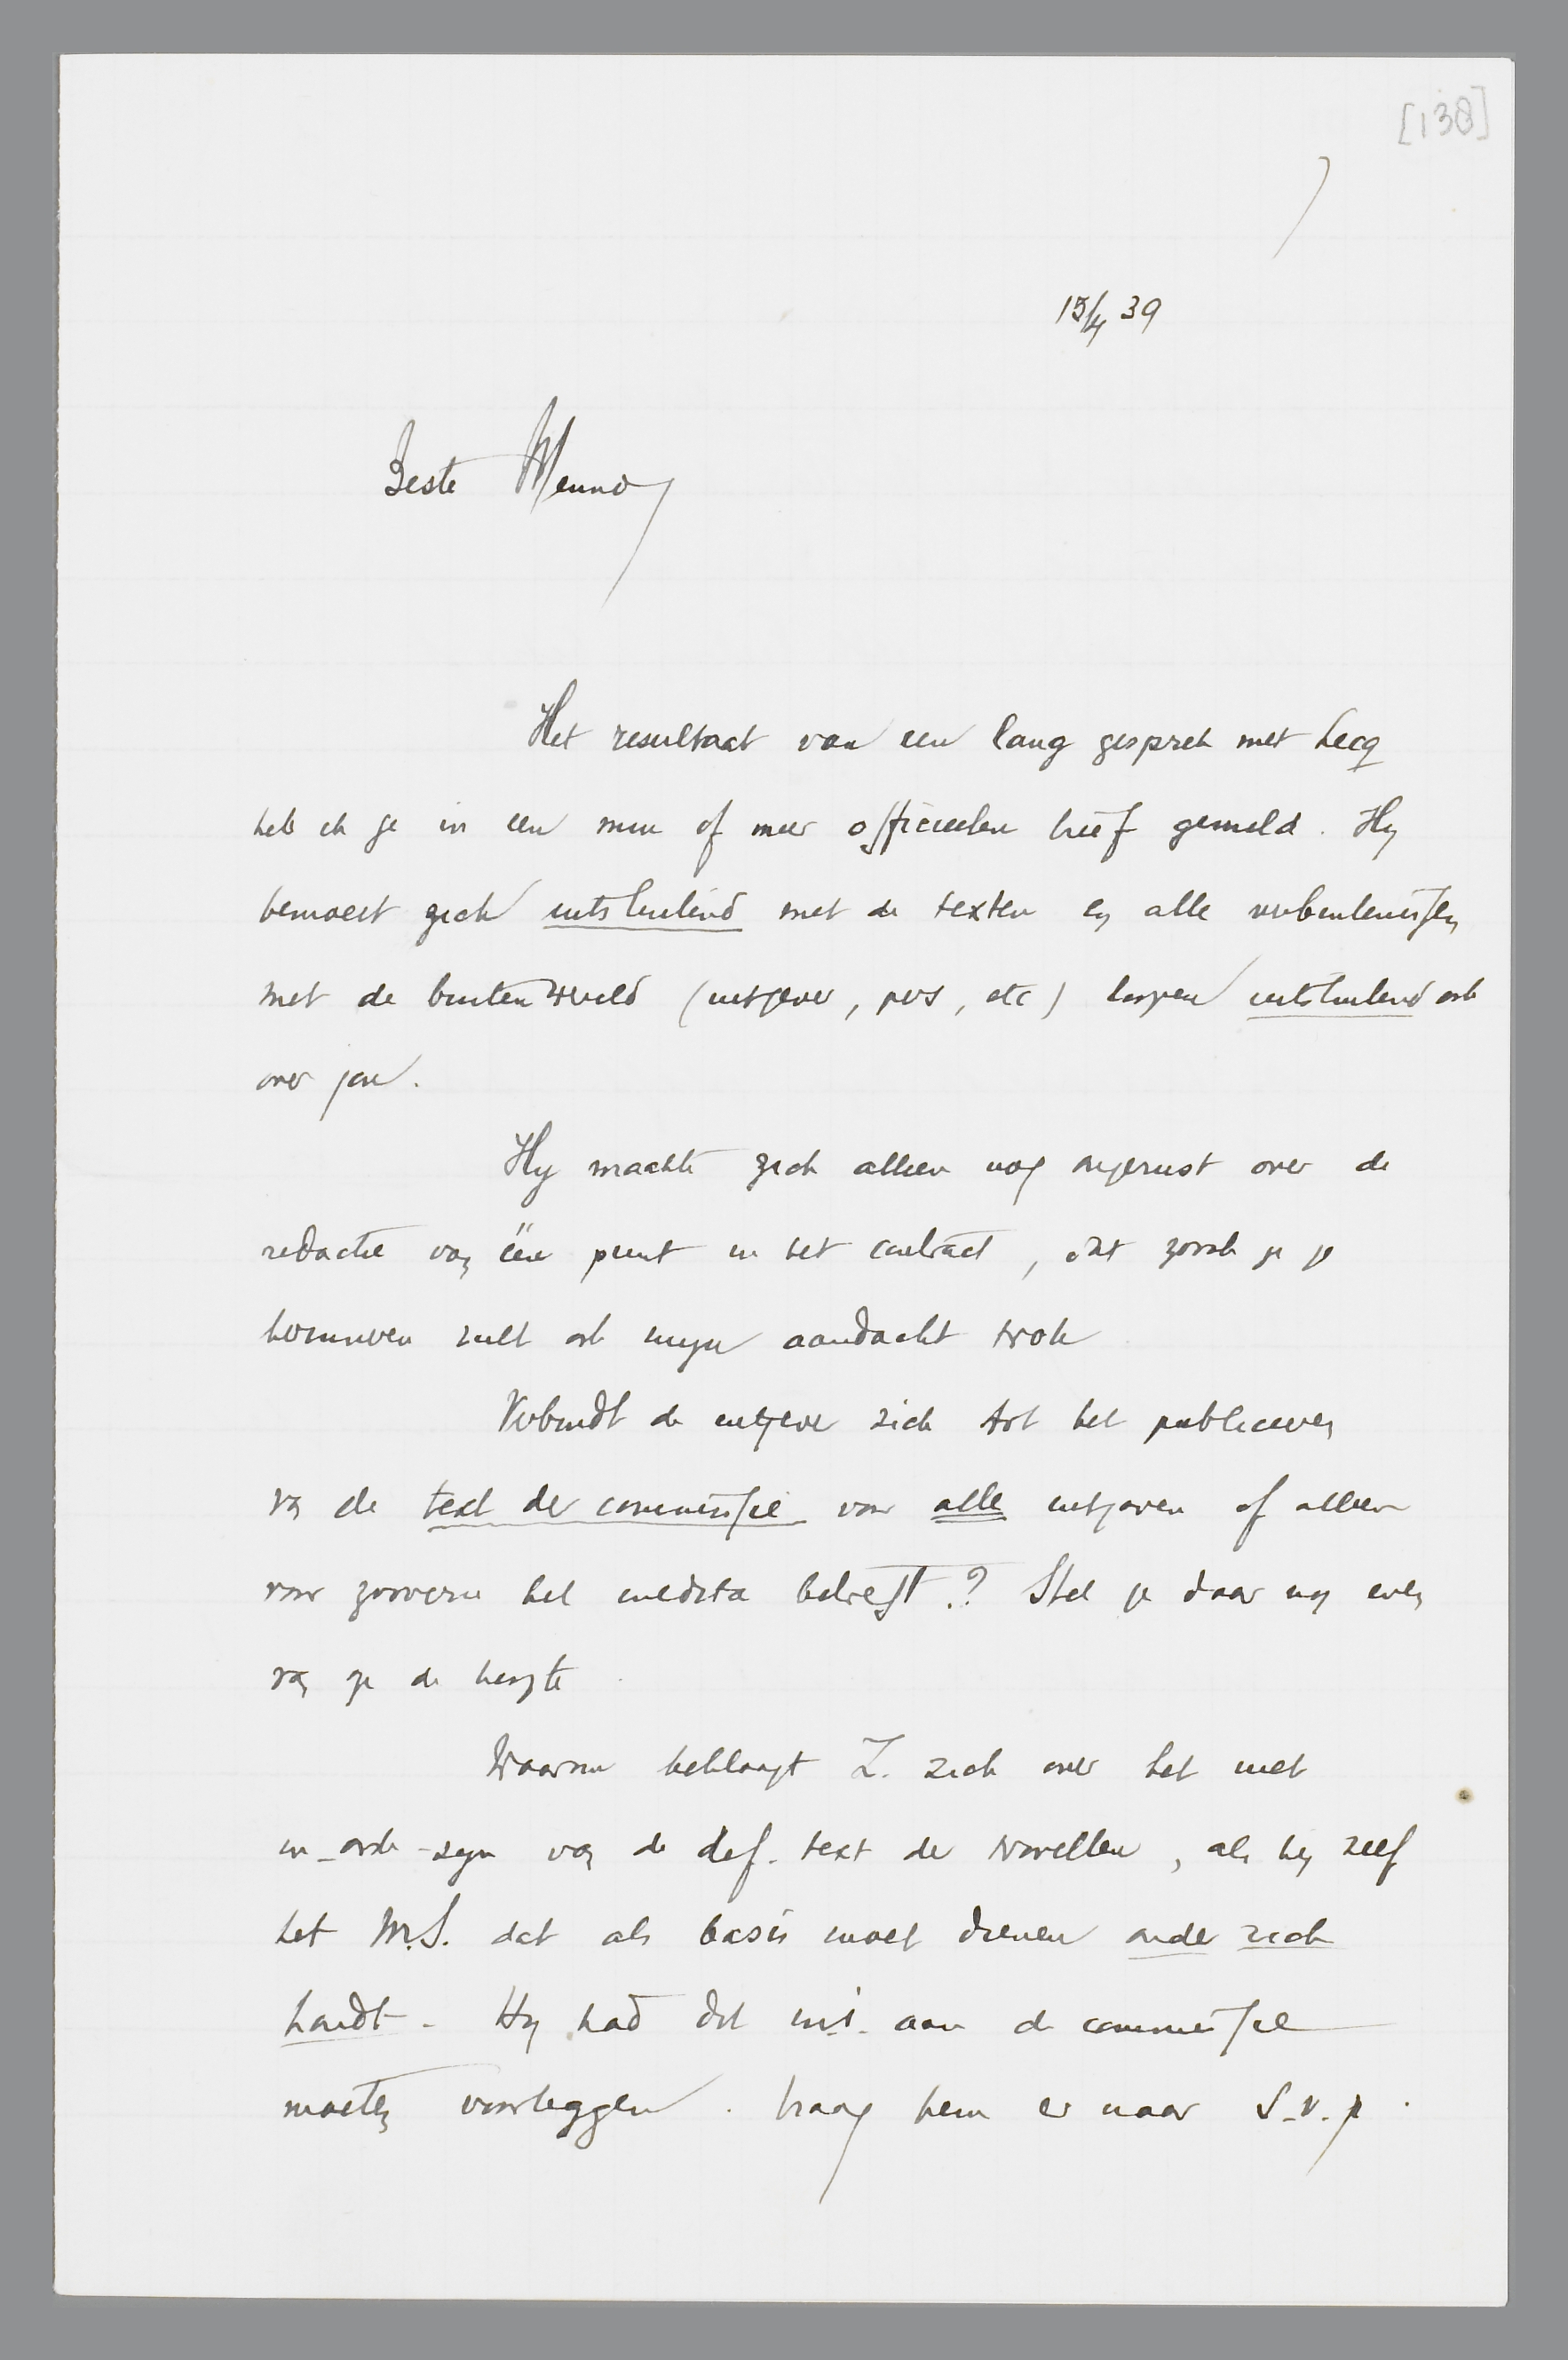 [138]
15/4 39
Beste Menno,
Het resultaat van een lang gesprek met Lecq
heb ik je in een min of meer officieelen brief gemeld. Hy
bemoeit zich uitsluitend met de texten en alle verbintenissen
met de buitenwereld (uitgever, pers, etc) loopen uitsluitend ook
over jou.
Hy maakte zich alleen nog ongerust over de
redactie van één punt in het contract, dat zooals je je
herinneren zult ook myn aandacht trok
Verbindt de uitgever zich tot het publiceeren
van de text der commissie voor alle uitgaven of alleen
voor zoover het inedita betreft? Stel je daar nog even
van op de hoogte.
Waarom beklaagt Z. zich over het niet
in-orde-zyn van de def. text der novellen, als hy zelf
het M.S. dat als basis moet dienen onder zich
houdt. Hy had dit m.s. aan de commissie
moeten voorleggen. Vraag hem er naar s.v.p.